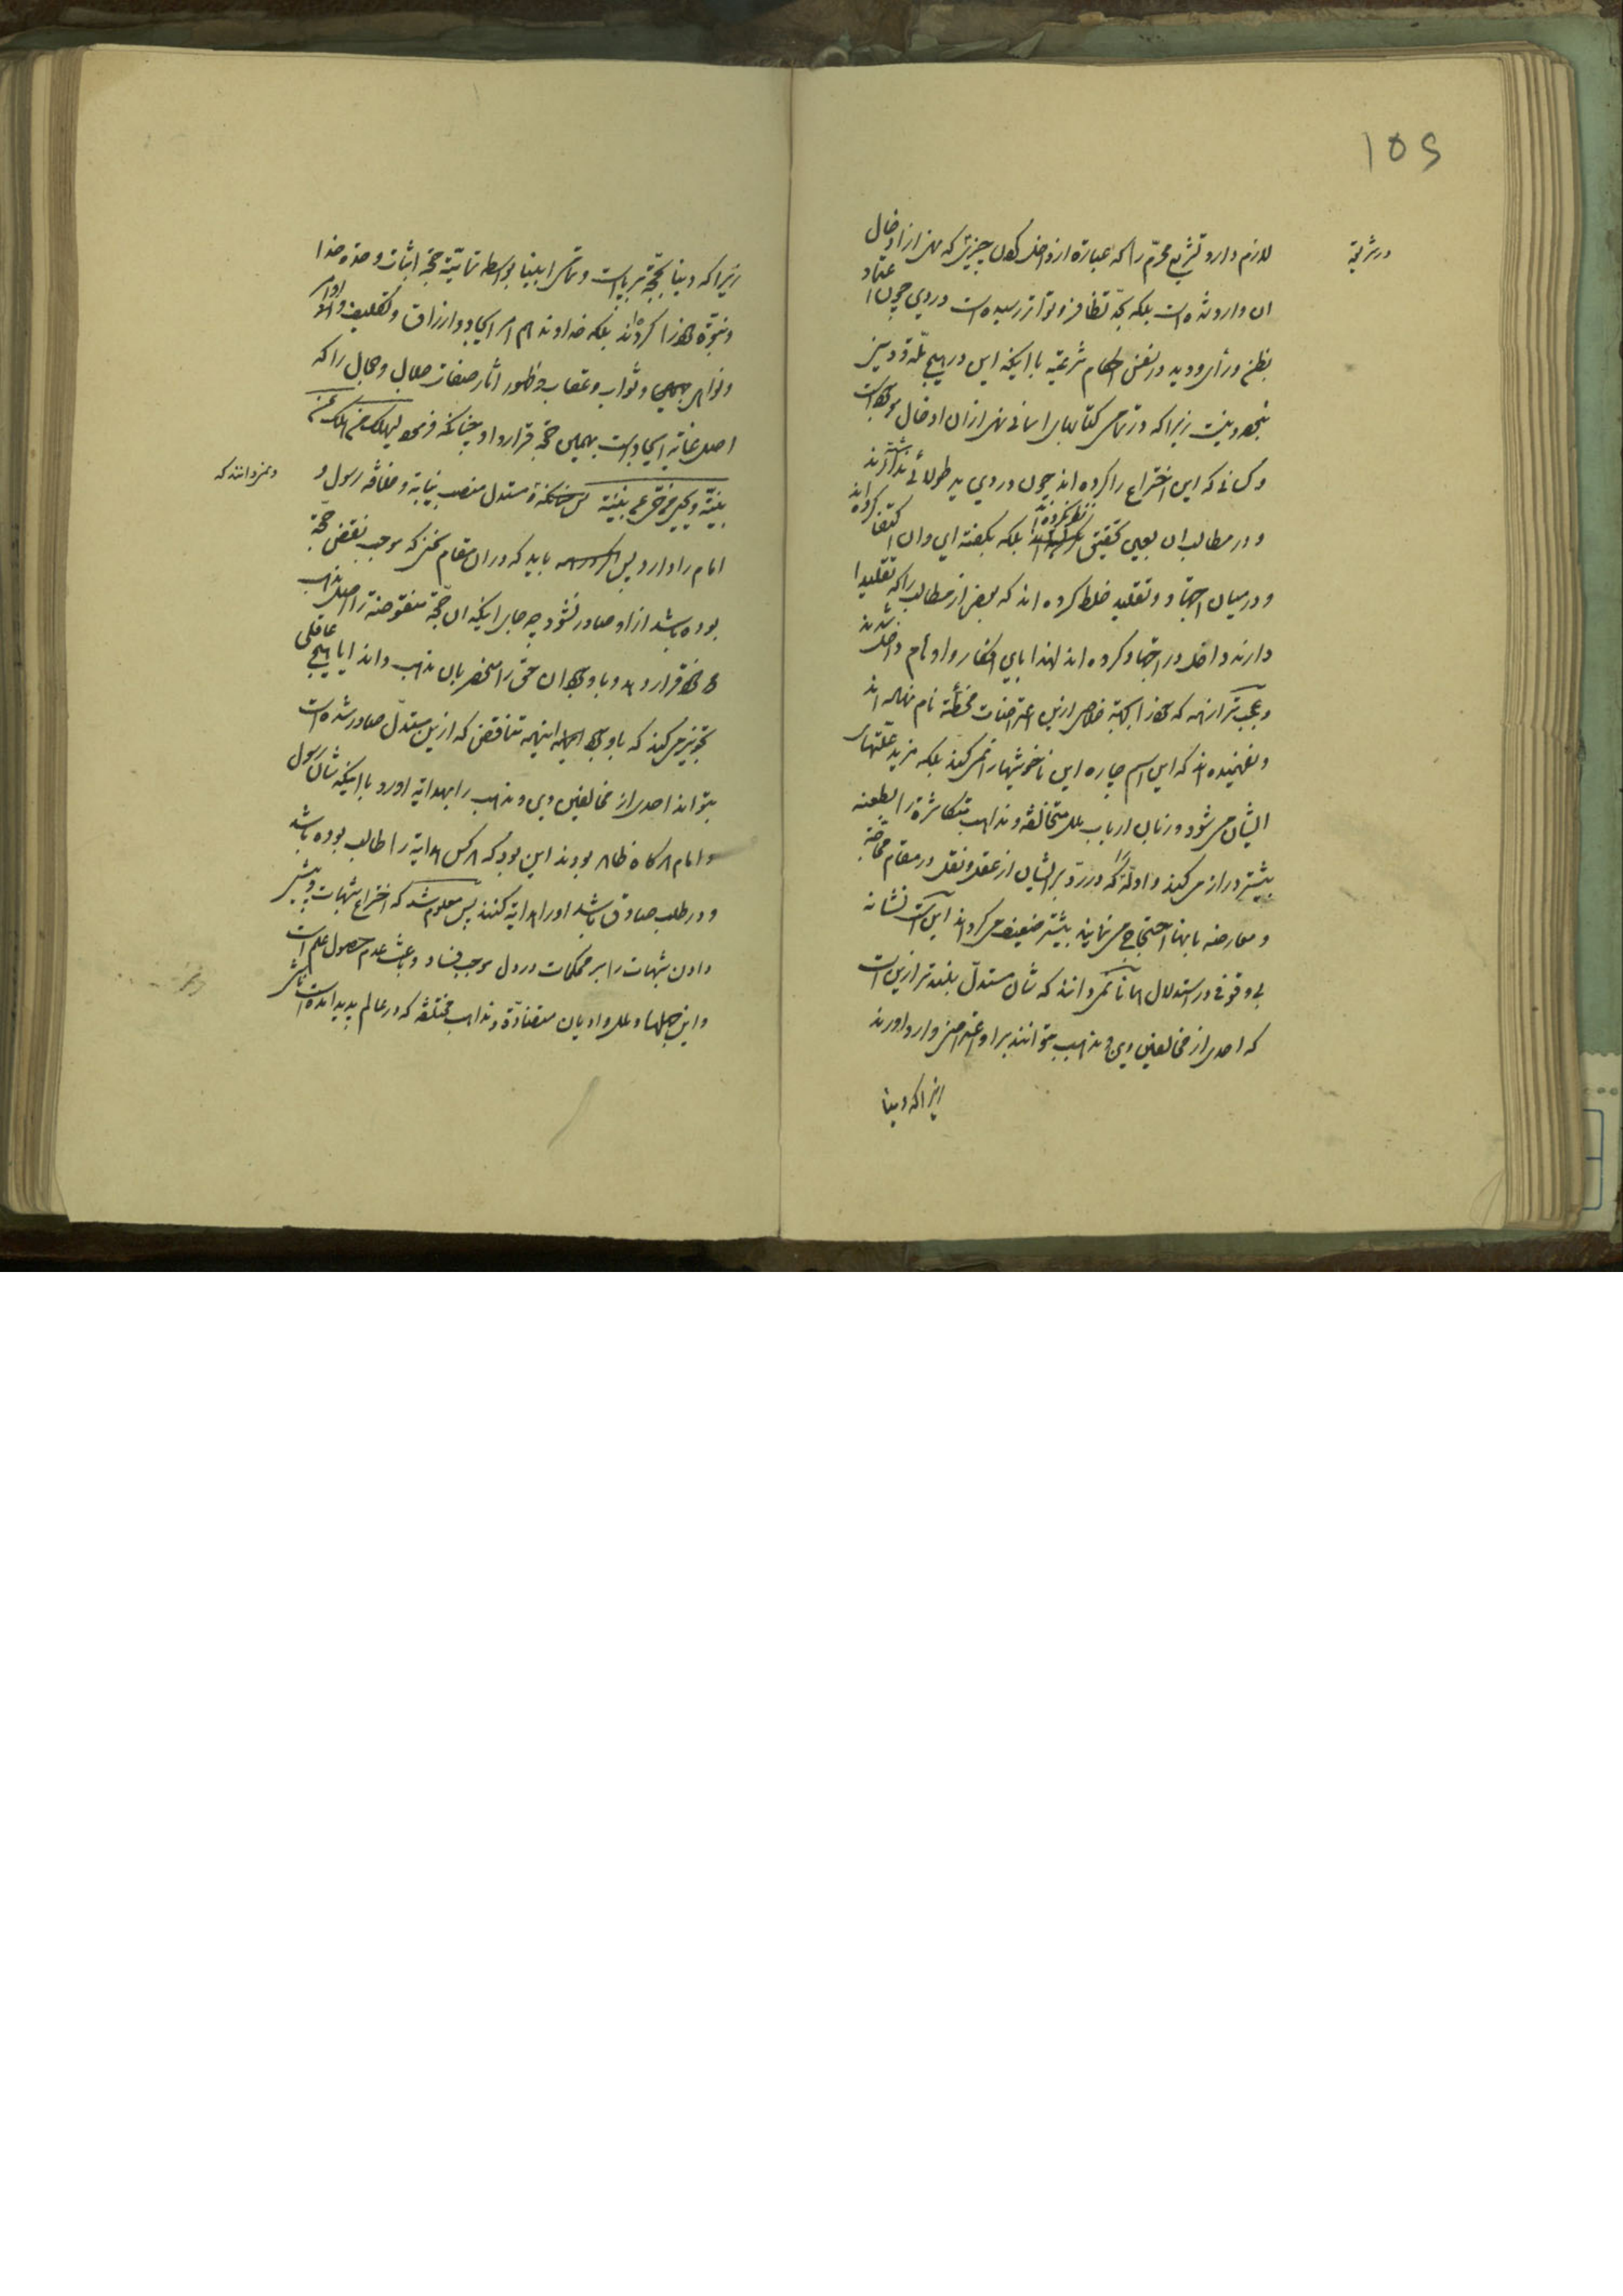 ۱۵۶
در شریعة
لازم دارد تشریع محرّم را که عبارة از داخل کردن چیزیست که نهی از ادخال
ان وارد شده است بلکه بحدّ تظافر و تواتر رسیده است در دین چون اعتماد
بظن و رأی و دید در نفس احکام شرعیّه با اینکه این در هیچ ملّة و دین
نبوده و نیست زیرا که در تمامی کتابهای اسمانی نهی از ان ادخال موجود است
و کسانی که این اختراع را کرده اند چون در دین ید طولائی نداشته اند
و در مطالب ان بعین تحقیق نظر نکرده اند بلکه بگفته این و ان اکتفا کرده اند
و در میان اجتهاد و تقلید خلط کرده اند که بعضی از مطالب را که تقلیدا
دارند داخل در اجتهاد کرده اند لهذا باین افکار و اوهام داخل شدند
و عجب تر از همه که خود را بجهة خلاصی ازین اعتراضات مخطّئه نام نهاده اند
و نفهمیده اند که این اسم چاره این ناخوشیها را نمی کند بلکه مزید علّتهای
ایشان می شود و زبان ارباب ملل متخالفه و مذاهب متکاثرة را بطعنه
بیشتر دراز می کند و ادلّه را که در ردّ بر ایشان از عقل و نقل در مقام محاجّه
و معارضه بانها احتجاج می نمایند بیشتر ضعیف می گرداند این است نشانه
بی وقوفی در استدلال همانا نمی دانند که شأن مستدلّ بلندتر ازین است
که احدی از مخالفین دین و مذهب بتوانند بر او اعتراضی وارد اورند
زیرا که دینا
زیرا که دینا بحجّة برپا است و تمامی انبیا بواسطه تمامیّة حجّة اثبات وحدة خدا
و نبوّة خود را کرده اند بلکه خداوند هم امر ایجاد و ارزاق و تکلیف و اوامر
و نواهی و ثواب و عقاب و ظهور اثار صفات جلال و جمال را که
اصل غایة ایجاد است بهمین حجّة قرار داد چنانکه فرموده لیهلک من هلک عن
بیّنة و یحیی من حیّ عن بیّنة پس مستدل منصب نیابة و خلافه رسول و
و نمی دانند که
امام را دارد پس باید که در ان مقام سخنی که موجب نقض حجّة
بوده باشد از او صادر نشود چه جای اینکه ان حجّة منقوضة را اصل مذهب
خود قرار دهد و با وجود ان حق را منحصر بان مذهب داند ایا هیچ عاقلی
تجویز می کند که با وجود اینهمه تناقض که ازین مستدلّ صادر شده است
بتواند احدی از مخالفین دین و مذهب را بهدایة اورد با اینکه شأن رسول
و امام هرگاه ظاهر بودند این بود که هر کس هدایة را طالب بوده باشد
و در طلب صادق باشد او را هدایة کنند پس معلوم شد که اختراع شبهات و نشر
دادن شبهات را بر محکمات در دل موجب فساد و باعث عدم حصول علم است
و این جهلها و ملل و ادیان متضادّة و مذاهب مختلفه که در عالم پدید امده است